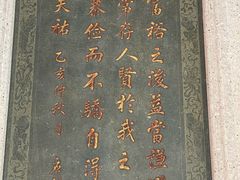 富裕之後益當謙
常存人賢於我之
恭儉而不驕自得
天祐 乙亥仲秋月